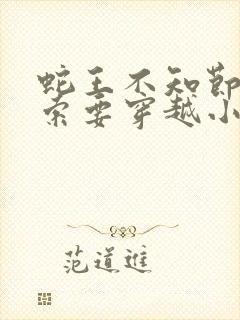 蛇王不知节
索要穿越小
范道進